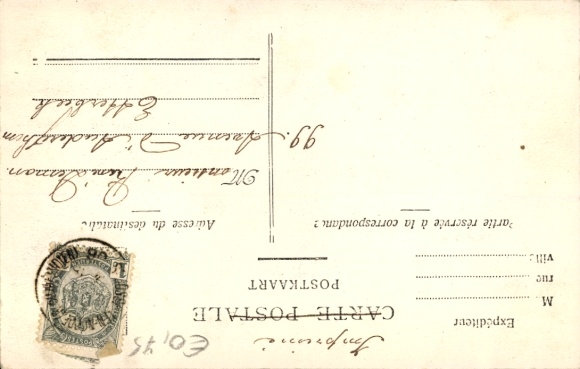 Imprimé
CARTE POSTALE
POSTKAART
Expéditeur
M
rue
ville
Partie réservée à la correspondance
Adresse du destinataire
M onsieur
99. Avenue D'Auderghem
Etterbeek
€0,75